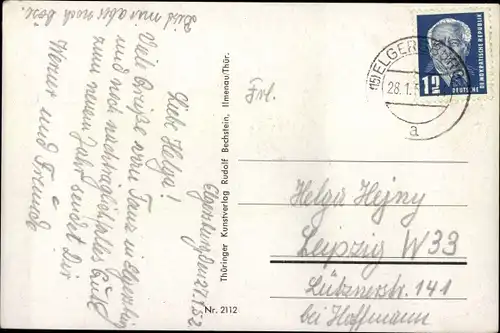 Elgersburg, den 27.1.52
Liebe Helga!
Viele Grüße vom Tanz in Elgersburg
und noch nachträglich alles Gute
zum neuen Jahr sendet Dir
Werner und Freunde
Bist mir aber noch böse.
Thüringer Kunstverlag Rudolf Bechstein, Ilmenau/Thür.
Nr. 2112
(15) ELGERSBURG
a
12
DEUTSCHE DEMOKRATISCHE REPUBLIK
Frl.
Helga Hejny
Leipzig W33
Lütznerstr. 141
bei Hoffmann